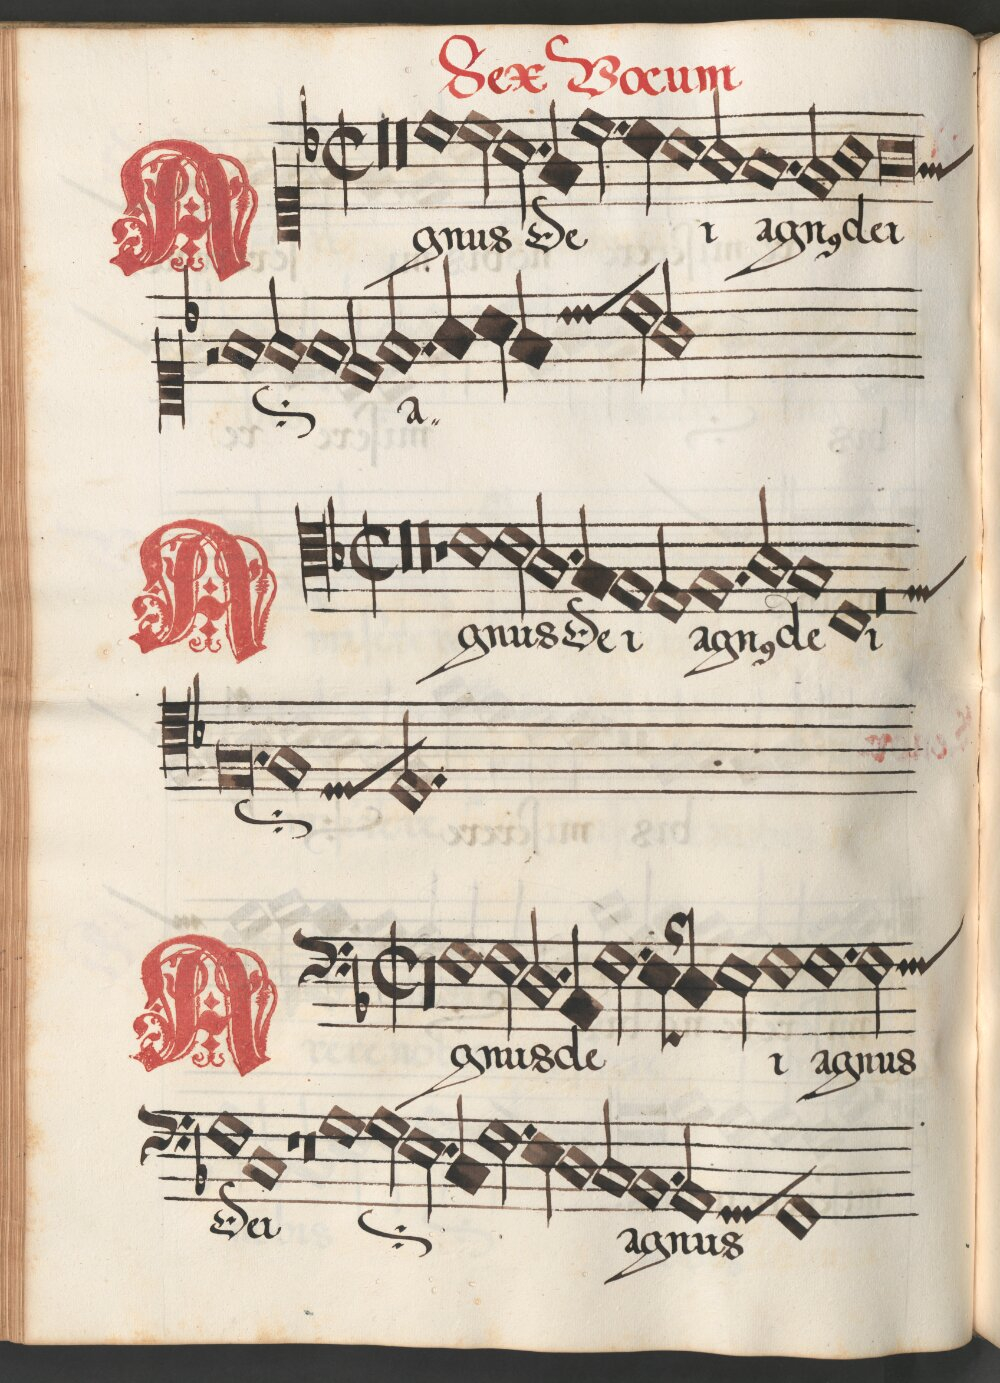 Sex Vocum
Agnus De i agnꝯ dei
a
Agnus De i agnꝯ de i
Agnus de i agnus
Dei agnus